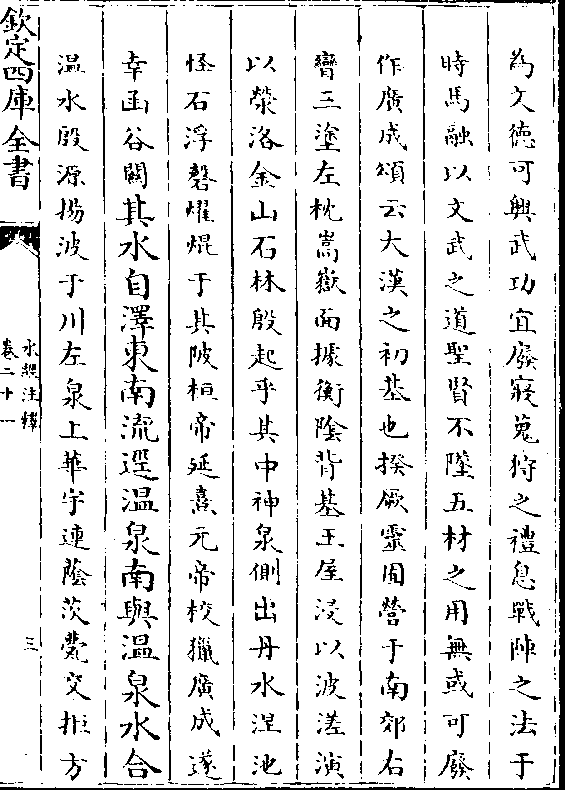 為文德可興武功宜廢寢蒐狩之禮息戰陣之法于
時馬融以文武之道聖賢不墜五材之用無或可廢
作廣成頌云大漢之初基也揆厥靈囿營于南郊右
彎三塗左枕嵩嶽面據衡陰背基王屋浸以波溠演
以滎洛金山石林殷起乎其中神泉側出丹水涅池
怪石浮磬燿焜于其陂桓帝延熹元帝校獵廣成遂
幸函谷闗其水自澤東南流逕溫泉南與溫泉水合
温水殷源揚波于川左泉上華宇連蔭茨甍交拒方
欽定四庫全書
水經注釋
卷二十一
三